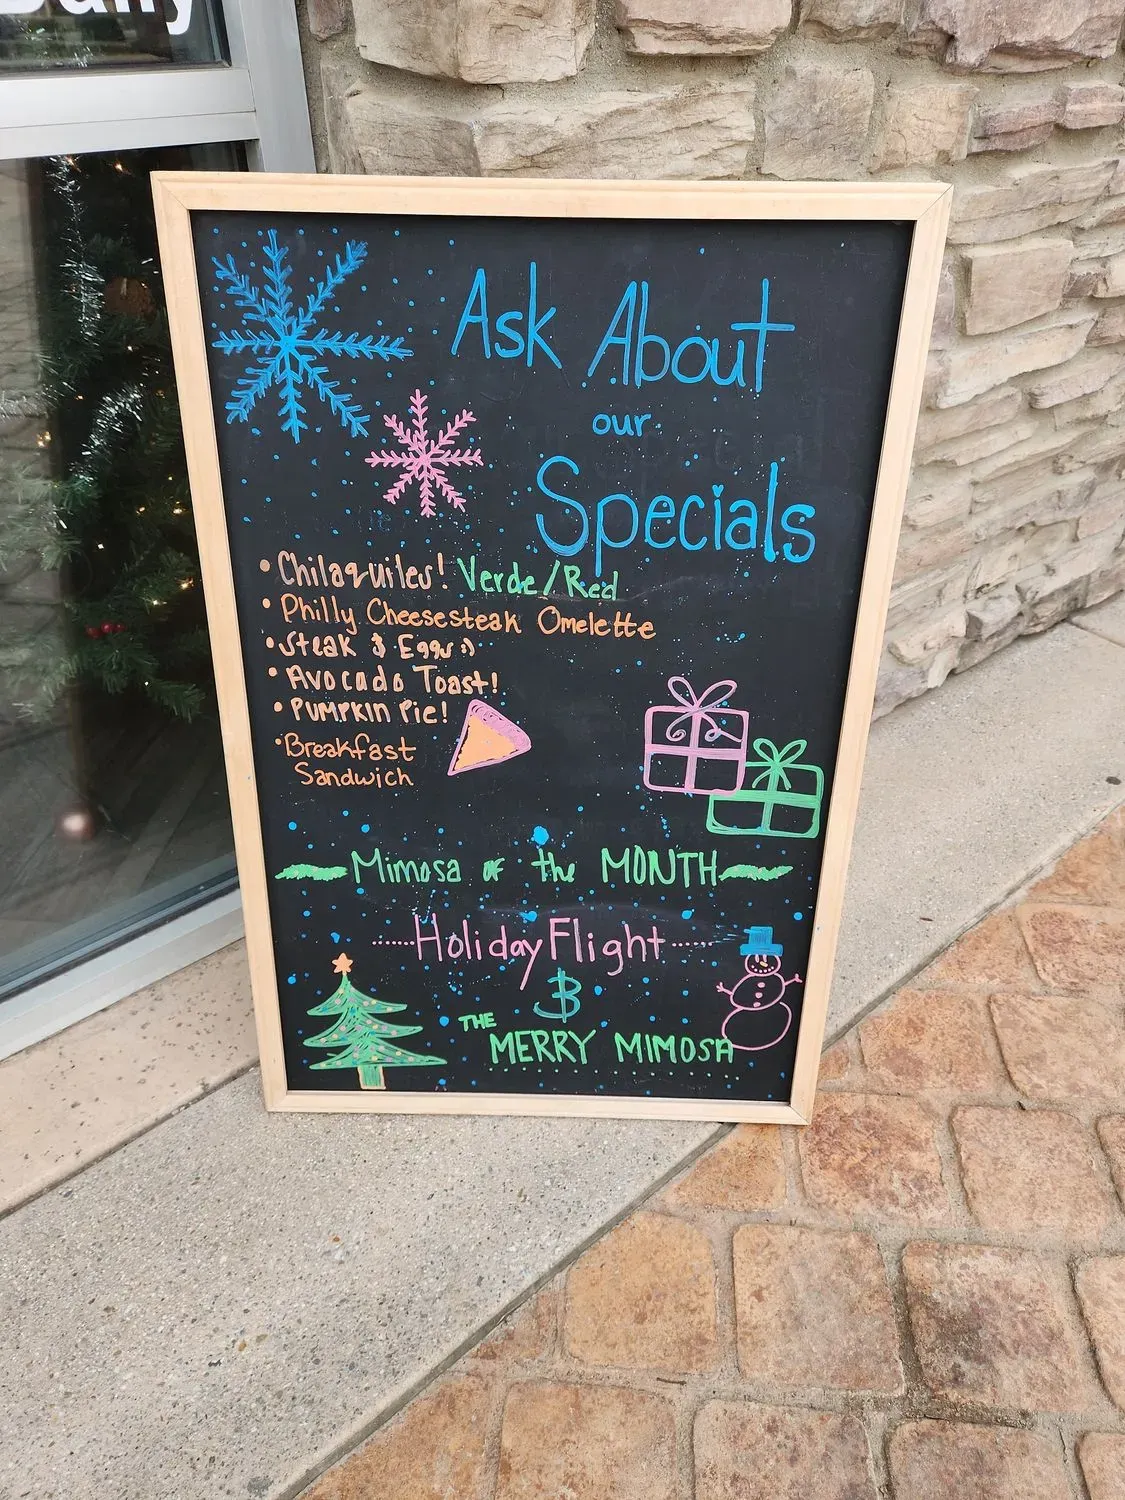 Ask About
our
Specials
• Chilaquiles! Verde/Red
• Philly Cheesesteak Omelette
• Steak & Eggs :)
• Avocado Toast!
• PUMPKIN PIE!
• Breakfast
Sandwich
Mimosa of the MONTH
Holiday Flight
&
THE
MERRY MIMOSA